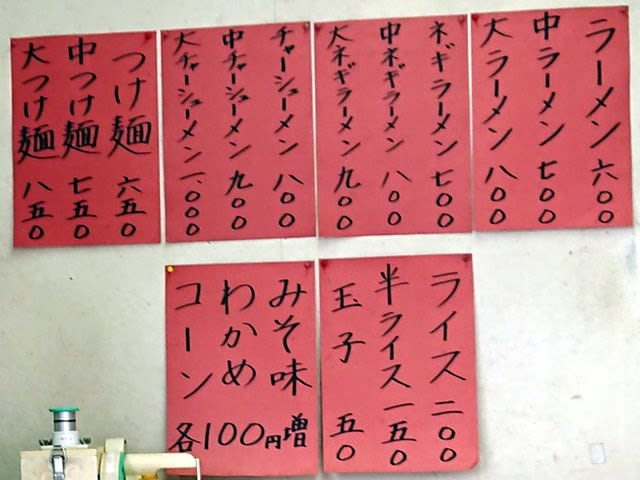 ラーメン 六〇〇
中ラーメン 七〇〇
大ラーメン 八〇〇
ネギラーメン 七〇〇
中ネギラーメン 八〇〇
大ネギラーメン 九〇〇
チャーシューメン 八〇〇
中チャーシューメン 九〇〇
大チャーシューメン 一、〇〇〇
つけ麺 六五〇
中つけ麺 七五〇
大つけ麺 八五〇
ライス 二〇〇
半ライス 一五〇
玉子 五〇
みそ味
わかめ
コーン
各100円増